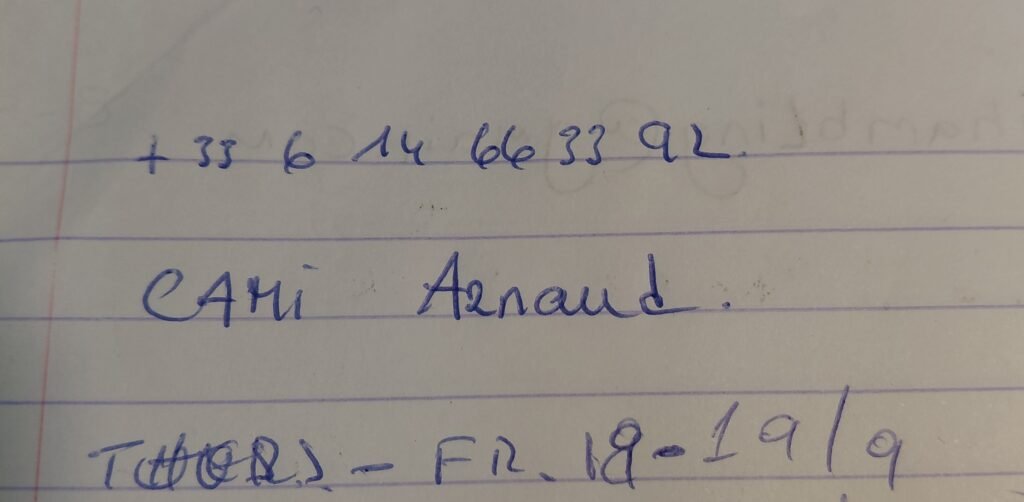 +33 6 14 66 33 92.
CAMi Arnaud.
THURS - FR. 18-19/9